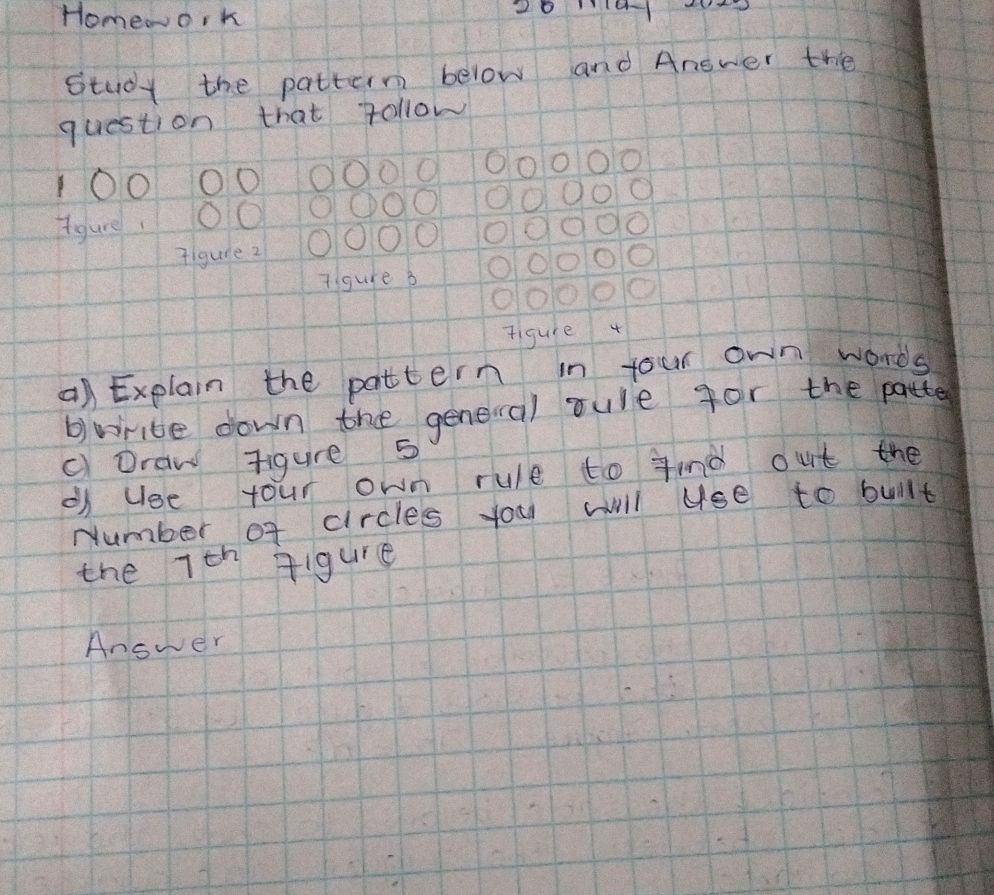 Homework 26 May
Study the pattern below and Answer the
question that follow
1 OO OO OOOO OOOOO
OO OOOO OOOOO
Figure 1 OOOO OOOOO
Figure 2 OOOOO
Figure 3 OOOOO
Figure 4
a) Explain the pattern in your own words
b) write down the general rule for the patte
c) Draw Figure 5
d) Use your own rule to find out the
Number of circles you will use to built
the 7th Figure
Answer